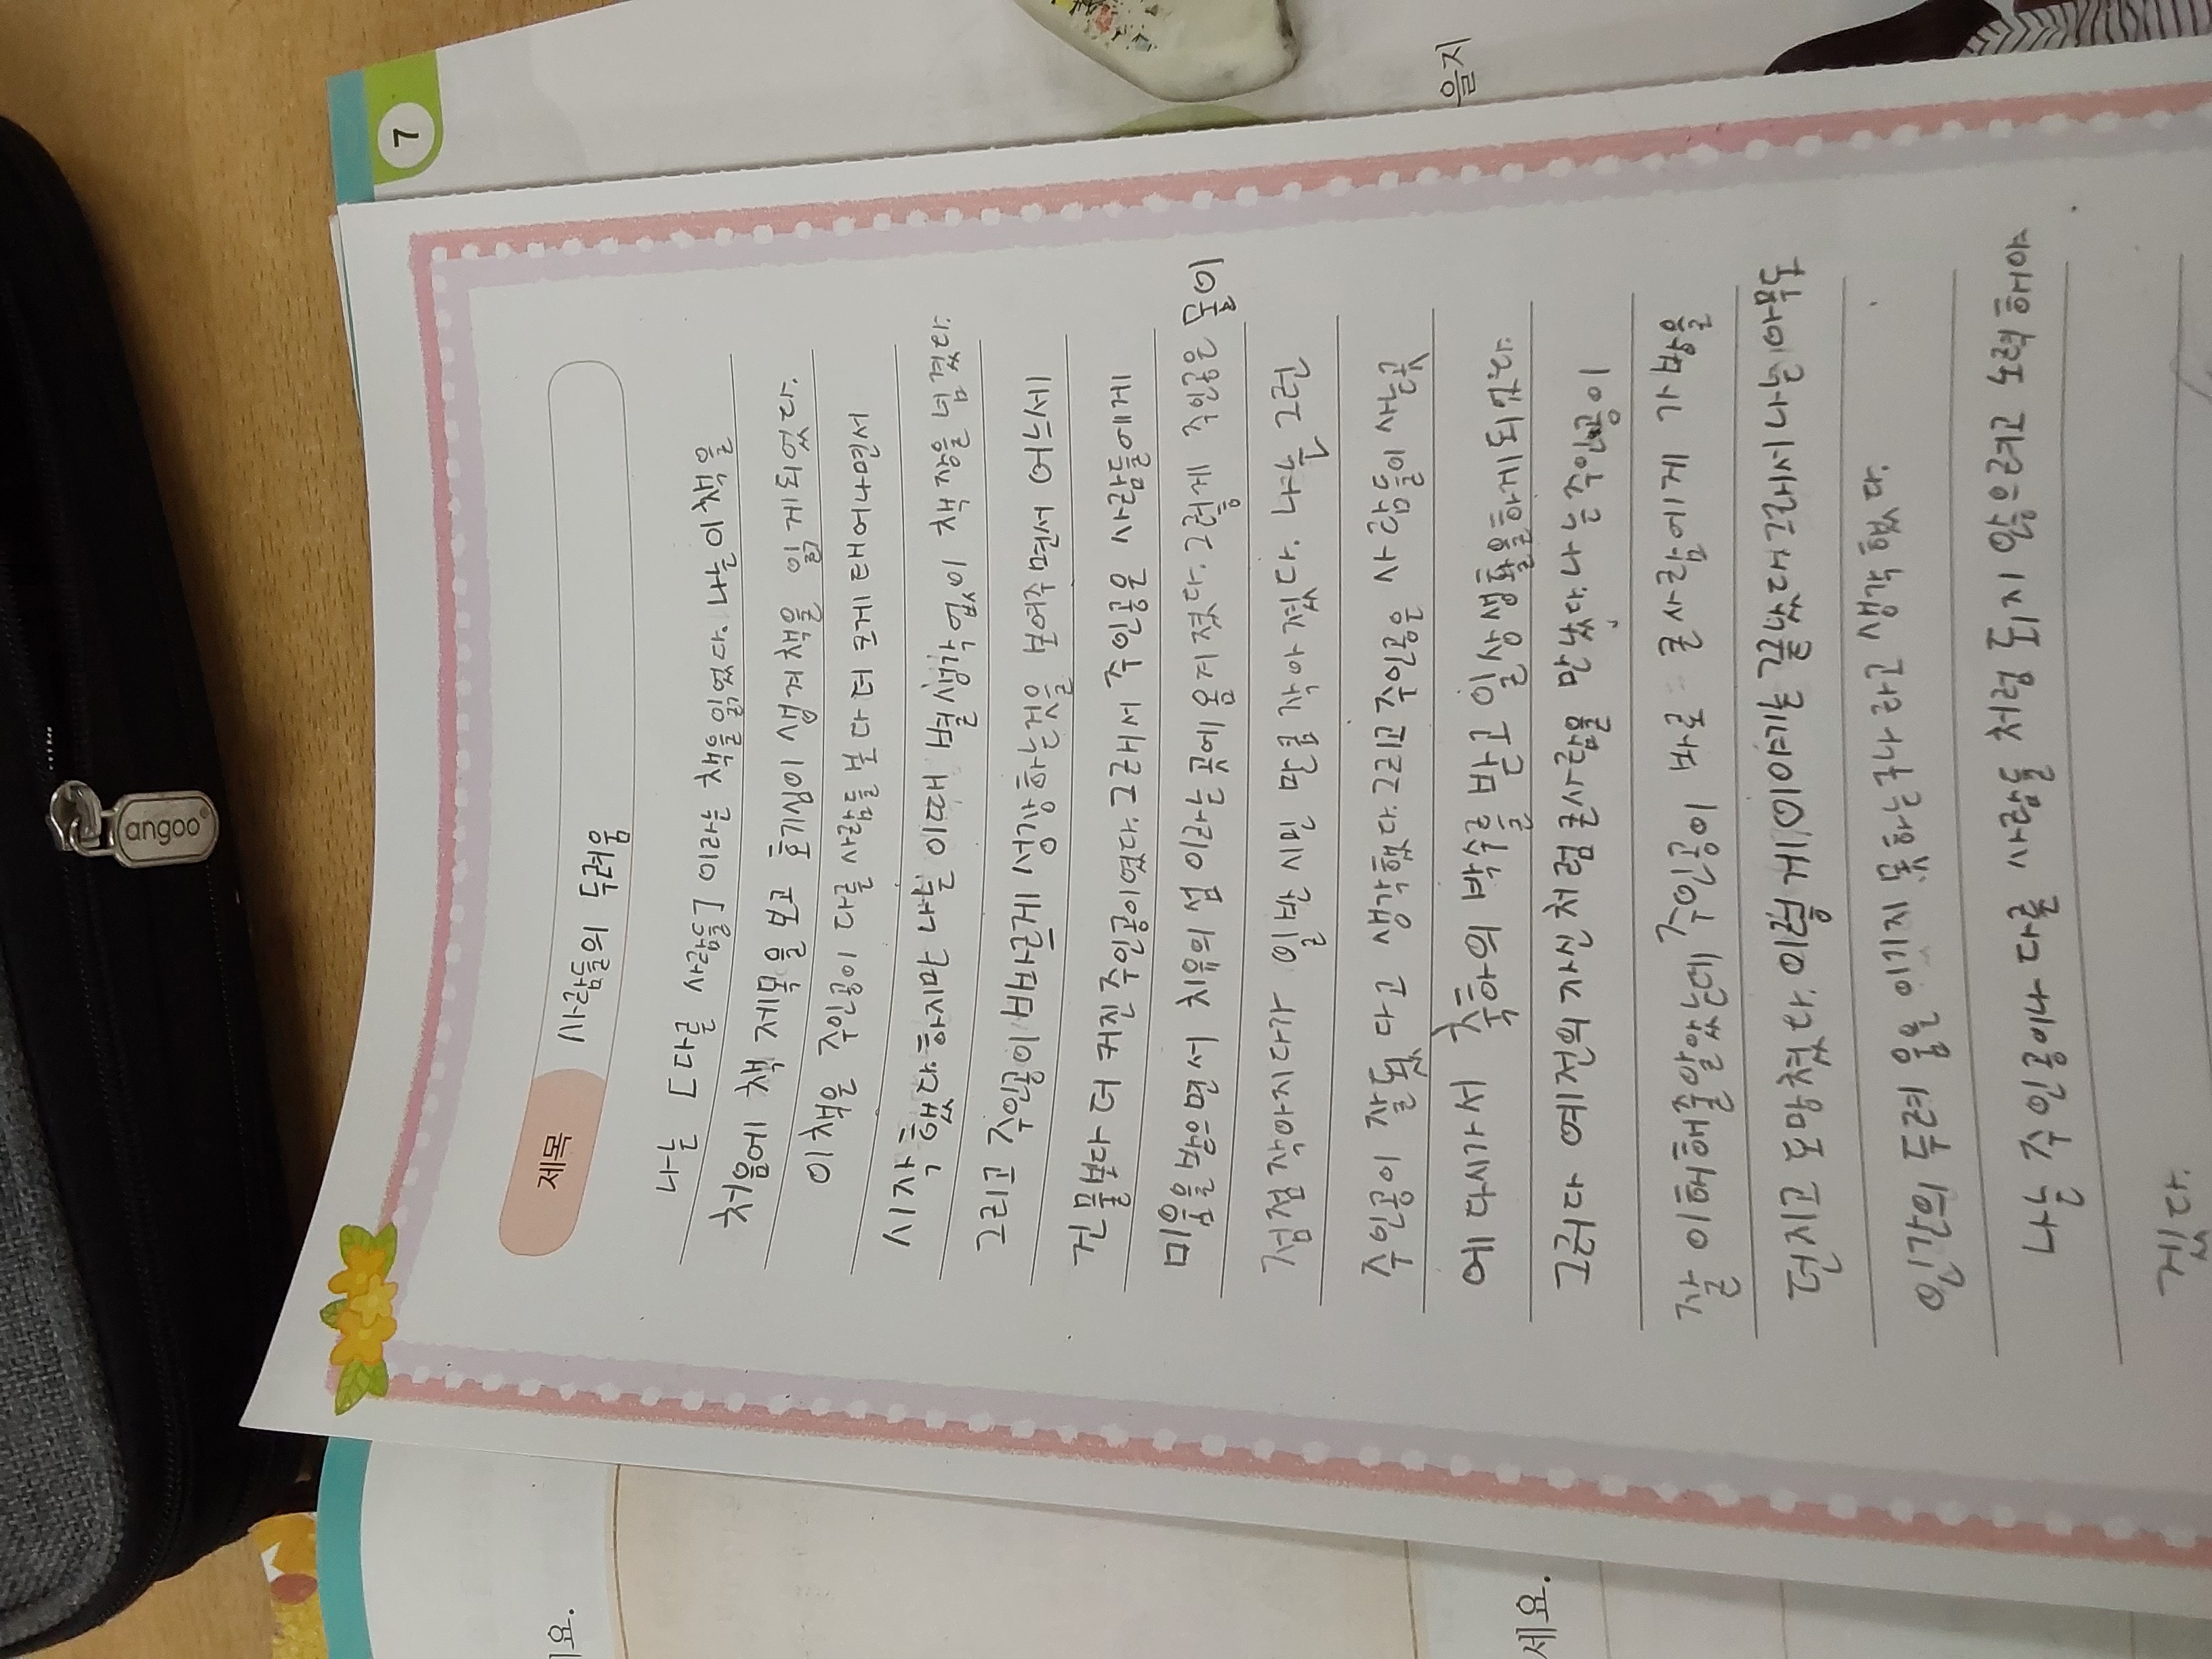 angoo
7
을지
제목
사람들의 두려움
나는 [다른 사람들] 이라는 책을 읽었다. 나는 이 책을
처음에 책 제목을 보고 호기심이 생겨 책을 읽게되었다.
이 책은 주인공이 다른 사람들 보다 더 크게 태어나면서
시작 했다 하지만 나는 이때 별 생각 없이 책장을 넘겼다.
그리고 주인공이 빠르게 성장하는것을 보여주면서 어느새
건물보다 더 커진 주인공이었다. 그래서 주인공은 사람들에게
미움을 받으면서 치유의 섬 이라는 곳에 옮겨졌다. 그렇게 주인공은 몸이
점점 작아지다가 일반 시민 만큼 작아 졌다. 나는 그런
주인공이 잘됬다고 생각했다. 그리고 주인공은 사람들이 사는 곳
에 다시가서 축하의 박수를 받고 일상생활을하게되었다
그러다 예전의 자신처럼 큰사람을 만났다. 나는 주인공이
잘 이해해줄알았는데 주인공이 바로 큰사람에게 가방을
던지고 도망쳤다.
인간의 두려움을 이기지 못하는구나라고 생각했다.
나는 주인공이나 다른 사람들처럼 되지 않으려고 노력해야
겠다.
세요.